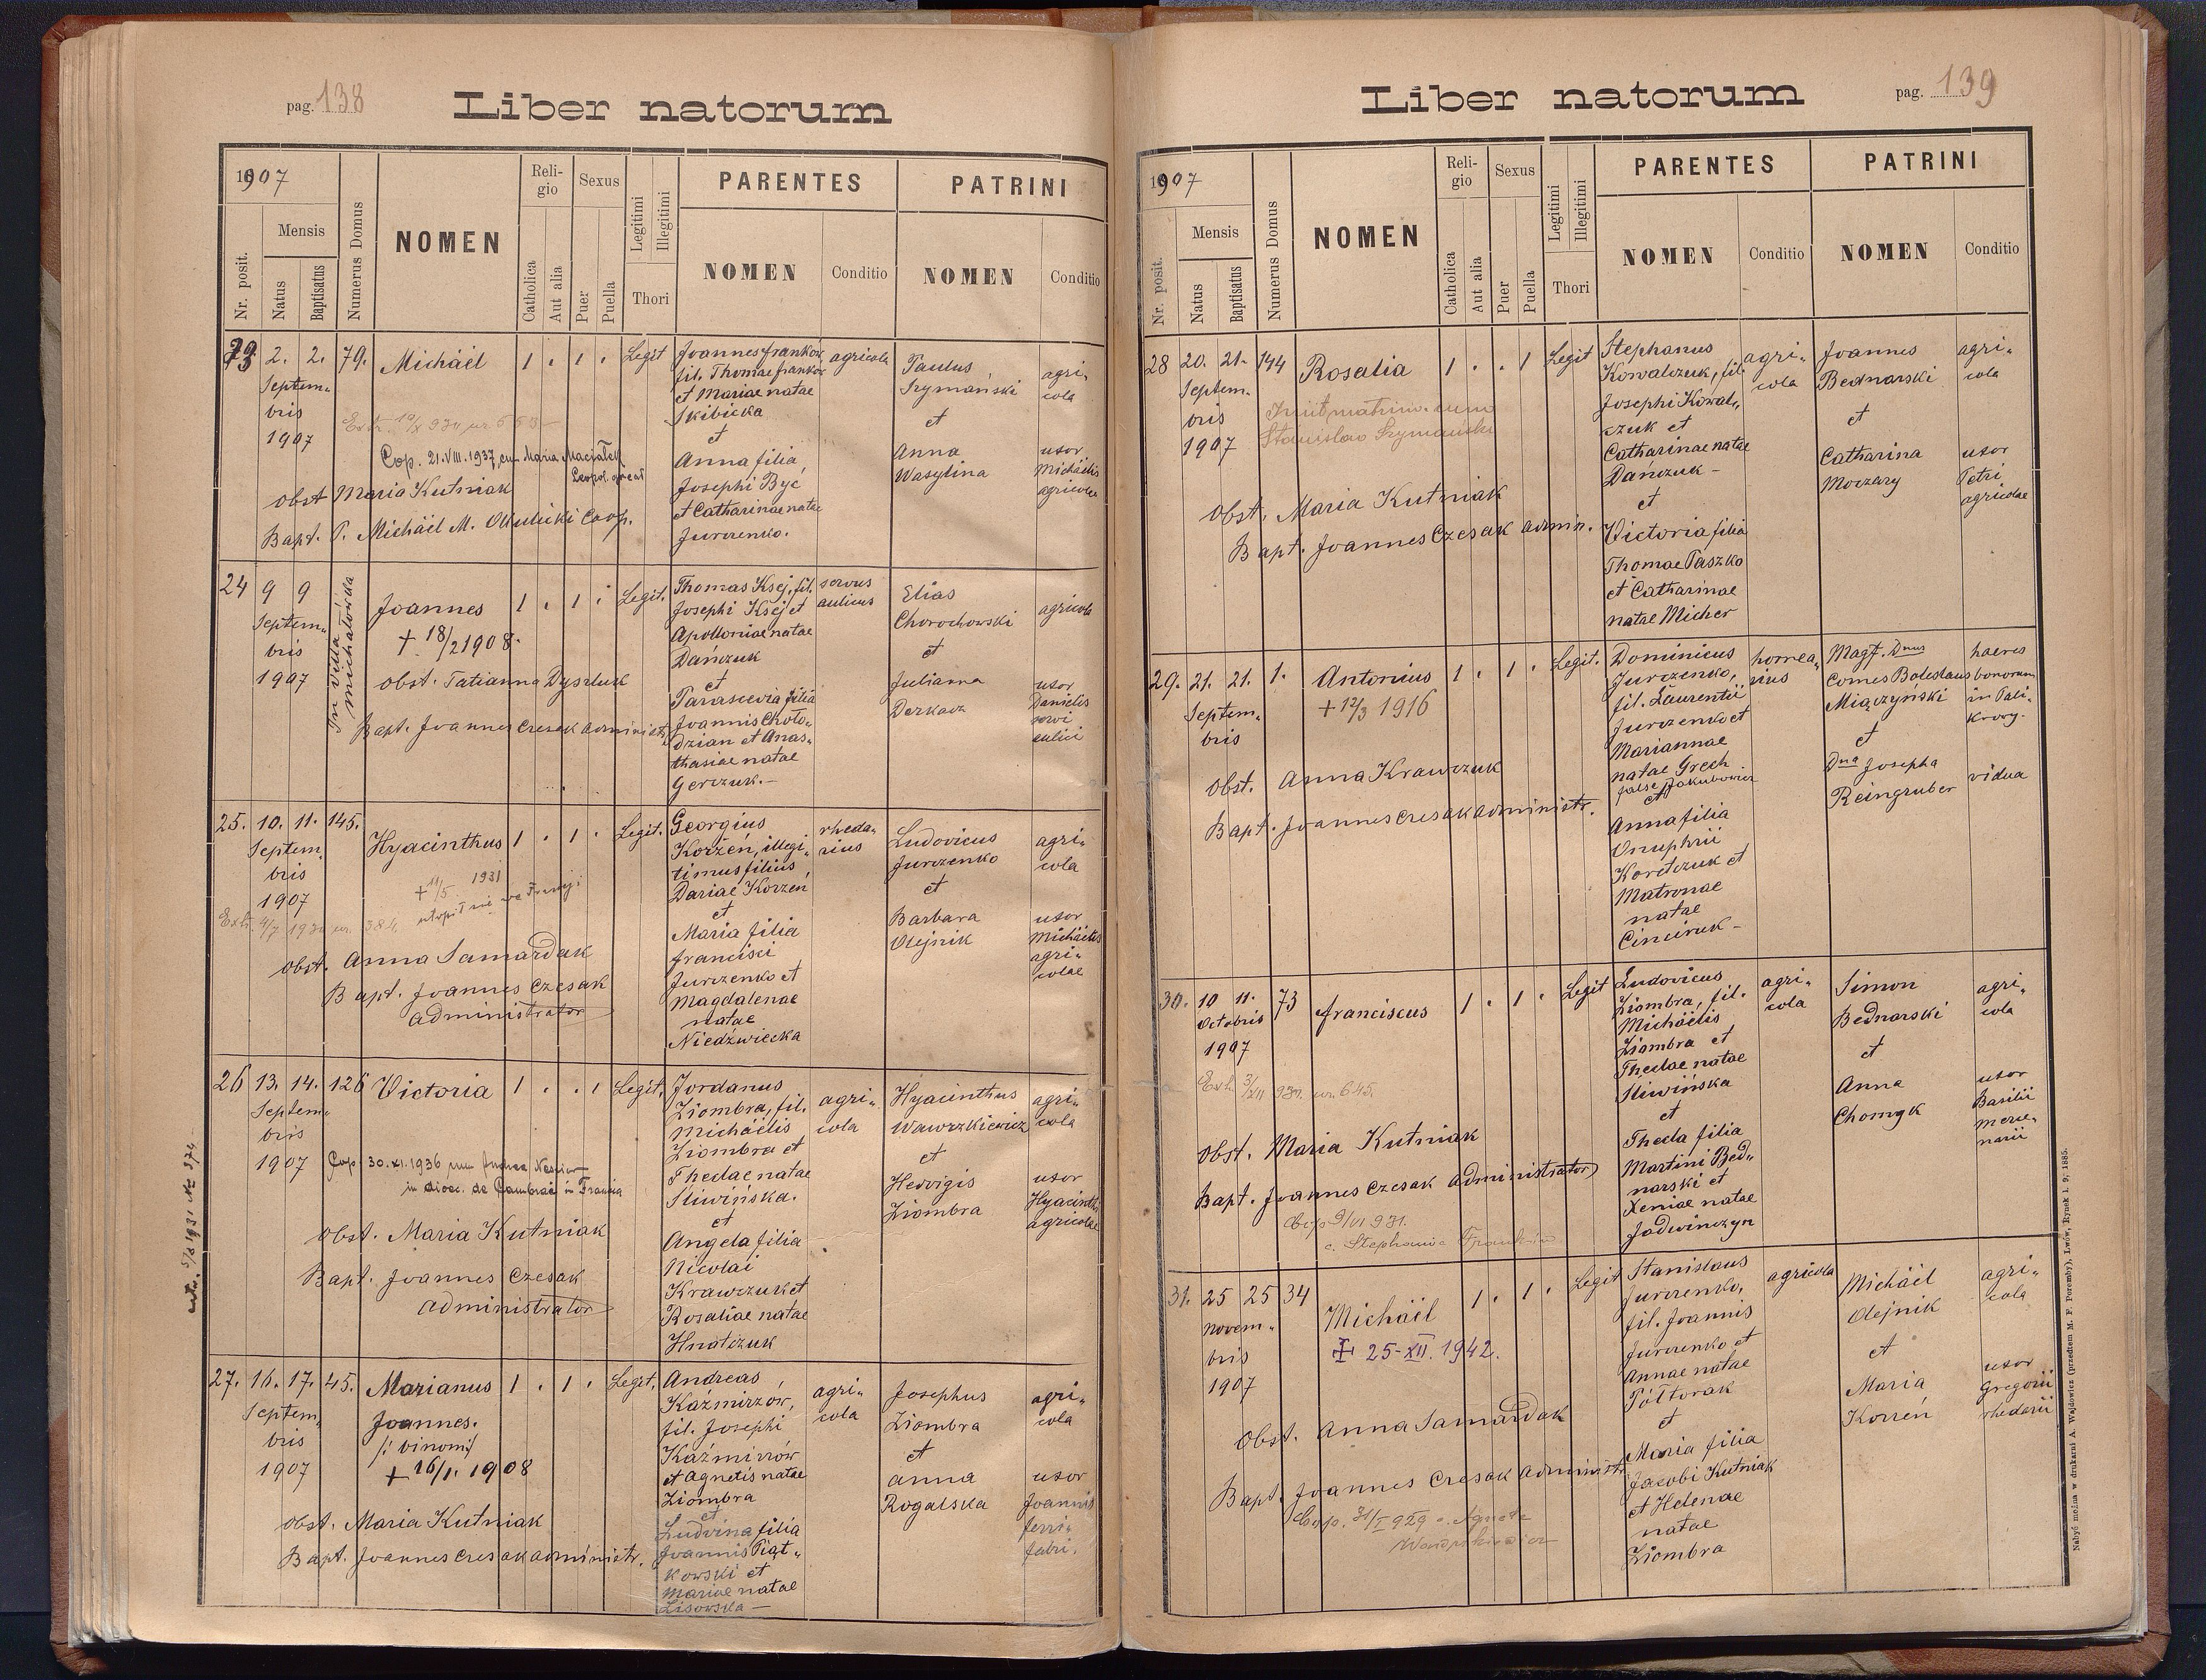 pag. 138
Liber natorum
1907
Nr. posit.
Mensis
Natus
Baptisatus
Numerus Domus
NOMEN
Religio
Catholica
Aut alia
Sexus
Puer
Puella
Legitimi
Illegitimi
Thori
PARENTES
NOMEN
Conditio
PATRINI
NOMEN
Conditio
23 2. 2. 79. Michaël 1 . 1 . Legit
Septem-
bris
1907
Cop. 21.VIII.1937, cum Maria Maciałek
Leopol.
Obst Maria Kutniak
Bapt. P. Michäel M. Okulicki Coop.
Joannes Frankow
fil. Thomae Frankow
et Mariae natae
Skibicka
et
Anna filia
Josephi Być
et Catharinae natae
Jurczenko.
agricola
Paulus
Szymański
et
Anna
Wasylina
agri-
cola
uxor
Michäelis
agricolae
24 9 9 In villa Michałówka Joannes 1 . 1 . Legit.
Septem-
bris
1907
+ 18/2 1908.
Obst. Tatianna Dyszluk
Bapt. Joannes Czesak administ.
Thomas Ksej, fil.
Josephi Ksej et
Apolloniae natae
Dańczuk
et
Parascevia filia
Joannis Choło-
dzian et Anas-
thasiae natae
Gerczuk.—
servus
aulicus
Elias
Chorochowski
et
Julianna
Derkacz
agricola
uxor
Danielis
servi
aulici
25. 10. 11. 145. Hyacinthus 1 . 1 . Legit.
Septem-
bris
1907
+ 11/5 1931
utopił się we Francji
Obst. Anna Samardak
Bapt. Joannes Czesak
administrator
Georgius
Korzeń, illegi-
timus filius
Dariae Korzeń
et
Maria filia
Francisci
Jurczenko et
Magdalenae
natae
Niedzwiecka
rheda-
rius
Ludovicus
Jurczenko
et
Barbara
Olejnik
agri-
cola
uxor
Michäelis
agri-
colae
26 13. 14. 126 Victoria 1 . . 1 Legit.
Septem-
bris
1907
Cop. 30.XI.1936 cum Andrea
in dioec. de Cambrai in Francia
Obst. Maria Kutniak
Bapt. Joannes Czesak
administrator
Jordanus
Ziombra, fil.
Michäelis
Ziombra et
Theclae natae
Śliwińska.
et
Angela filia
Nicolai
Krawczuk et
Rosaliae natae
Hnatczuk
agri-
cola
Hyacinthus
Wawrzkiewicz
et
Hedvigis
Ziombra
agri-
cola
uxor
Hyacinthi
agricolae
27. 16. 17. 45. Marianus 1 . 1 . Legit.
Septem-
bris
1907
Joannes.
/: binomi:/
+ 16/1. 1908
Obst. Maria Kutniak
Bapt. Joannes Czesak administr.
Andreas
Kaźmirzów,
fil. Josephi
Kaźmirzów
et Agnetis natae
Ziombra
et
Ludvina filia
Joannis Piąt-
kowski et
Mariae natae
Lisowska —
agri-
cola
Josephus
Ziombra
et
Anna
Rogalska
agri-
cola
uxor
Joannis
ferri-
fabri.
pag. 139
Liber natorum
1907
Nr. posit.
Mensis
Natus
Baptisatus
Numerus Domus
NOMEN
Religio
Catholica
Aut alia
Sexus
Puer
Puella
Legitimi
Illegitimi
Thori
PARENTES
NOMEN
Conditio
PATRINI
NOMEN
Conditio
28 20. 21. 144 Rosalia 1 . . 1 Legit
Septem-
bris
1907
Iniit matrim. cum
Stanislao Szymański
Obst. Maria Kutniak
Bapt. Joannes Czesak admin.
Stephanus
Kowalczuk, fil.
Josephi Kowal-
czuk et
Catharinae natae
Dańczuk —
et
Victoria filia
Thomae Paszko
et Catharinae
natae Micher
agri-
cola
Joannes
Bednarski
et
Catharina
Moczary
agri-
cola
uxor
Petri
agricolae
29. 21. 21. 1. Antonius 1 . 1 . Legit.
Septem-
bris
+ 12/3 1916
Obst. Anna Krawczuk
Bapt. Joannes Czesak administr.
Dominicus
Jurczenko,
fil. Laurentii
Jurczenko et
Mariannae
natae Grech
false Jakubowicz
et
Anna filia
Onuphrii
Korolczuk et
Matronae
natae
Cinciruk —
horrea-
rius
Magf. Dnus
Comes Boleslaus
Miączyński
et
Dna Josepha
Reingruber
haeres
bonorum
in Pali-
krowy.
vidua
30. 10 11. 73 Franciscus 1 . 1 . Legit
Octobris
1907
Obst. Maria Kutniak
Bapt. Joannes Czesak administrator
Cop. 9/VI 931.
c. Stephania
Ludovicus
Ziombra, fil.
Michäelis
Ziombra et
Theclae natae
Śliwińska
et
Thecla filia
Martini Bed-
narski et
Xeniae natae
Jadwinczyn
agri-
cola
Simon
Bednarski
et
Anna
Chomyk
agri-
cola
uxor
Basilii
merce-
narii
31. 25 25 34 Michäel 1 . 1 . Legit
Novem-
bris
1907
25-XII. 1942.
Obst. Anna Samardak
Bapt. Joannes Czesak administ.
Cop. 31/I 929 c. Agneta
Stanislaus
Jurczenko,
fil. Joannis
Jurczenko et
Annae natae
Półtorak
et
Maria filia
Jacobi Kutniak
et Helenae
natae
Ziombra
agricola
Michäel
Olejnik
et
Maria
Korzeń
agri-
cola
uxor
Gregorii
rhedarii
Nabyć można w drukarni A. Wajdowicz (przedtem M. F. Poremby), Lwów, Rynek l. 9; 1885.